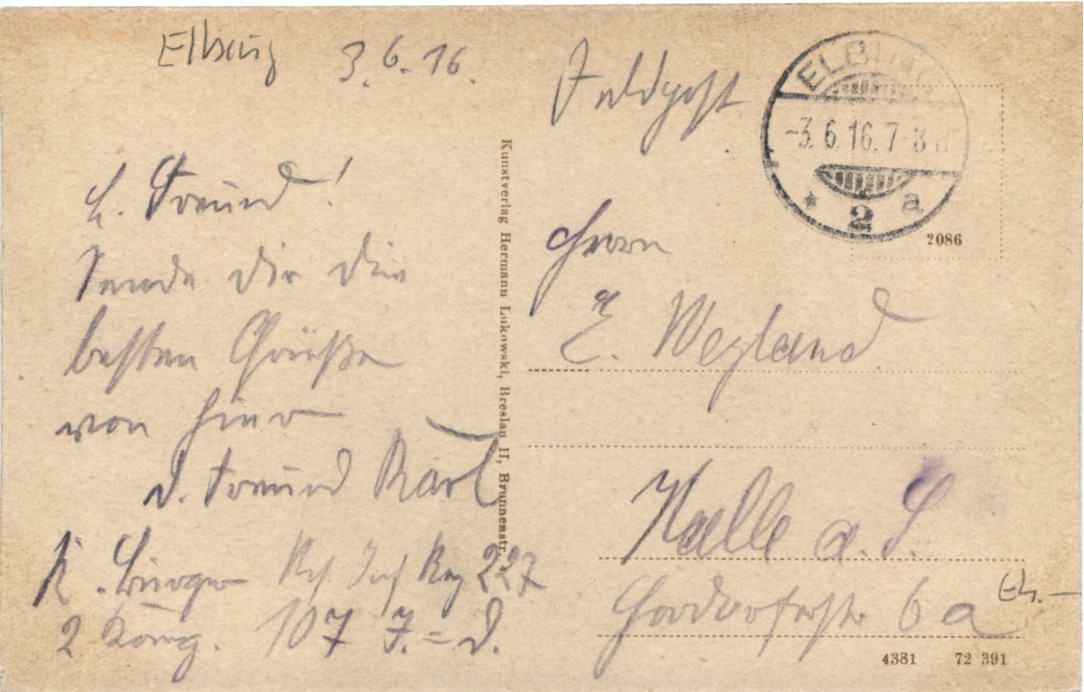 Elbing 3.6.16.
L. Freund!
Sende dir die
besten Grüße
von hier
d. Freund Karl
K. Burger Res. Inf Reg 227
2 Komp. 107 I.=D.
Kunstverlag Hermann Lukowski, Breslau II, Brunnenstr.
Feldpost
ELBING
-3.6.16.7-8N
* 2 a
2086
Herrn
E. Weyland
Halle a. S.
6a
4381 72 391